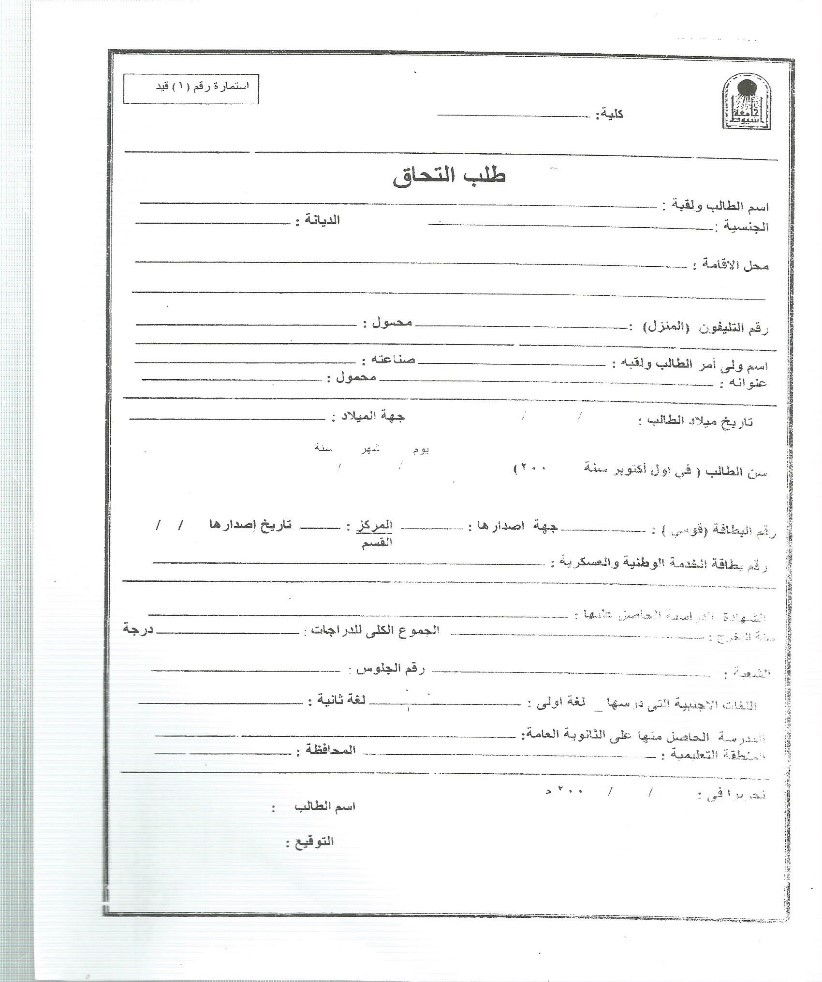 استمارة رقم (١) قيد
جامعة أسيوط
كلية:
طلب التحاق
اسم الطالب ولقبة :
الجنسية : الديانة :
محل الاقامة :
رقم التليفون (المنزل) : محمول :
اسم ولى أمر الطالب ولقبه : صناعته :
عنوانه : محمول :
تاريخ ميلاد الطالب : / / جهة الميلاد :
يوم شهر سنة
سن الطالب ( فى اول أكتوبر سنة ٢٠٠ ) / /
رقم البطاقة (قومي ) : جهة اصدارها : المركز : تاريخ إصدارها / /
القسم
رقم بطاقة الخدمة الوطنية والعسكرية :
الشهادة الدراسية الحاصل عليها :
سنة التخرج : الجموع الكلى للدراجات : درجة
الشعبة : رقم الجلوس :
اللغات الاجنبية التى درسها _ لغة اولى : لغة ثانية :
المدرسة الحاصل منها على الثانوية العامة:
المنطقة التعليمية : المحافظة :
تحريرا فى : / / ٢٠٠ م
اسم الطالب :
التوقيع :